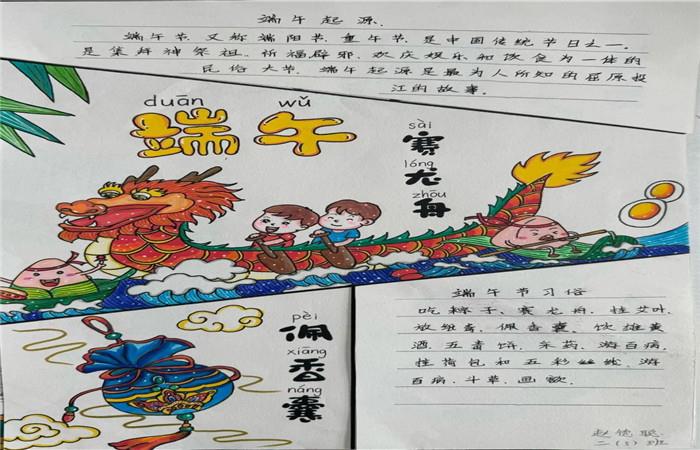 端午起源
端午节、又称端阳节、重午节、是中国传统节日之一。
是集拜神祭祖、祈福辟邪、欢庆娱乐和饮食为一体的
民俗大节、端午起源是最为人所知的屈原投
江的故事。
duān wǔ
端午
sài
赛
lóng
龙
zhōu
舟
pèi
佩
xiāng
香
náng
囊
端午节习俗
吃粽子、赛龙舟、挂艾叶、
放纸鸢、佩香囊、饮雄黄
酒、五毒饼、采药、游百病、
挂荷包和五彩丝线、游
百病、斗草、画额、
赵德聪
二(5)班